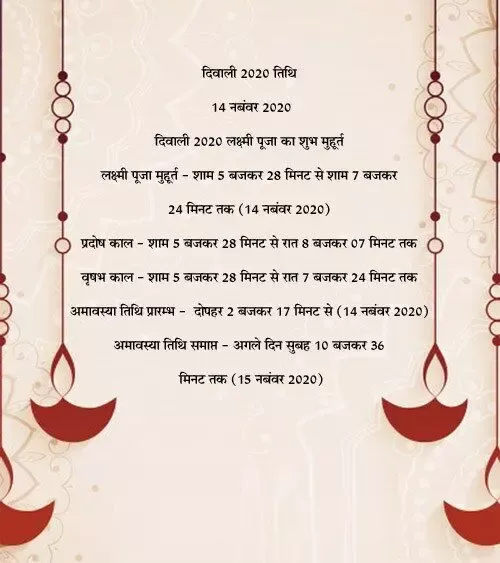 दिवाली 2020 तिथि
14 नबंवर 2020
दिवाली 2020 लक्ष्मी पूजा का शुभ मुहूर्त
लक्ष्मी पूजा मुहूर्त - शाम 5 बजकर 28 मिनट से शाम 7 बजकर
24 मिनट तक (14 नवंबर 2020)
प्रदोष काल - शाम 5 बजकर 28 मिनट से रात 8 बजकर 07 मिनट तक
वृषभ काल - शाम 5 बजकर 28 मिनट से रात 7 बजकर 24 मिनट तक
अमावस्या तिथि प्रारम्भ - दोपहर 2 बजकर 17 मिनट से (14 नवंबर 2020)
अमावस्या तिथि समाप्त - अगले दिन सुबह 10 बजकर 36
मिनट तक (15 नवंबर 2020)